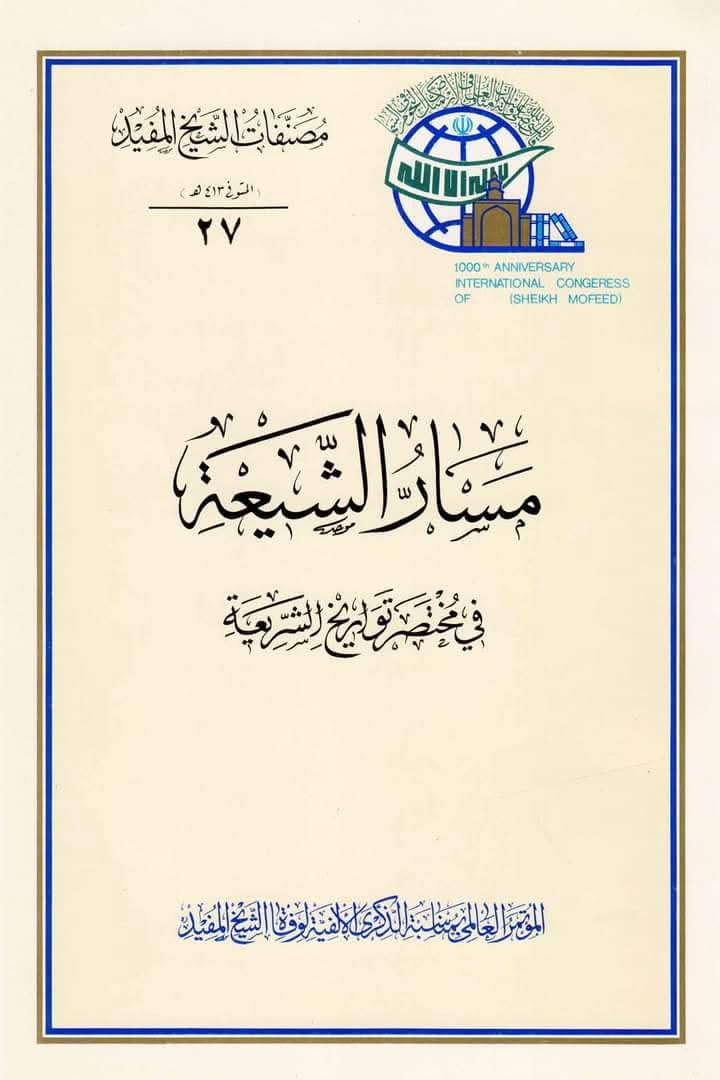 مصنفات الشيخ المفيد
(المتوفى ٤١٣ هـ)
٢٧
لا إله إلا الله
1000th ANNIVERSARY
INTERNATIONAL CONGERESS
OF (SHEIKH MOFEED)
مَسَارُّ الشِّيعَةِ
في مُختَصَر تَواريخِ الشَّرِيعَةِ
المؤتمر العالمي بمناسبة الذكرى الألفية لوفاة الشيخ المفيد